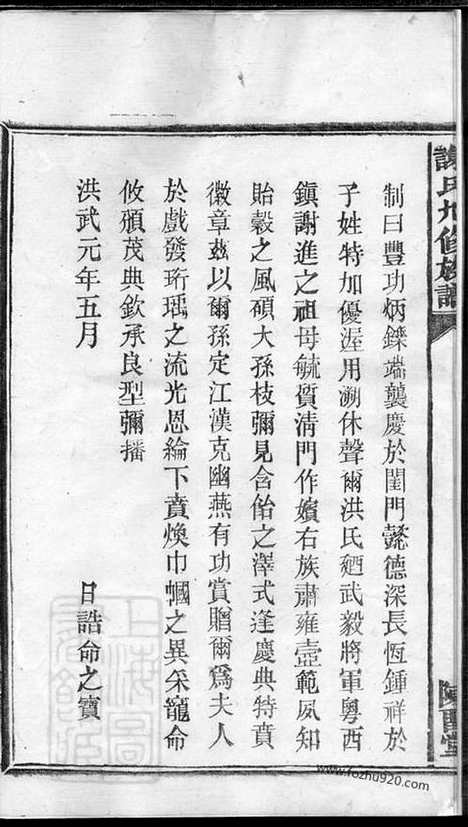 謝氏九修族譜
制曰豐功炳鑠端襲慶於閨門懿德深長恆鍾祥於
子姓特加優渥用溯休聲爾洪氏廼武毅將軍粵西
鎮謝進之祖母毓質清門作嬪右族肅雍壼範夙知
貽穀之風碩大孫枝彌見含飴之澤式逢慶典特賁
徽章兹以爾孫定江漢克幽燕有功賞贈爾為夫人
於戲發珩瑀之流光恩綸下賁煥巾幗之異采寵命
攸頒茂典欽承良型彌播
洪武元年五月 日誥命之寶
上海圖
www.fozhu920.com